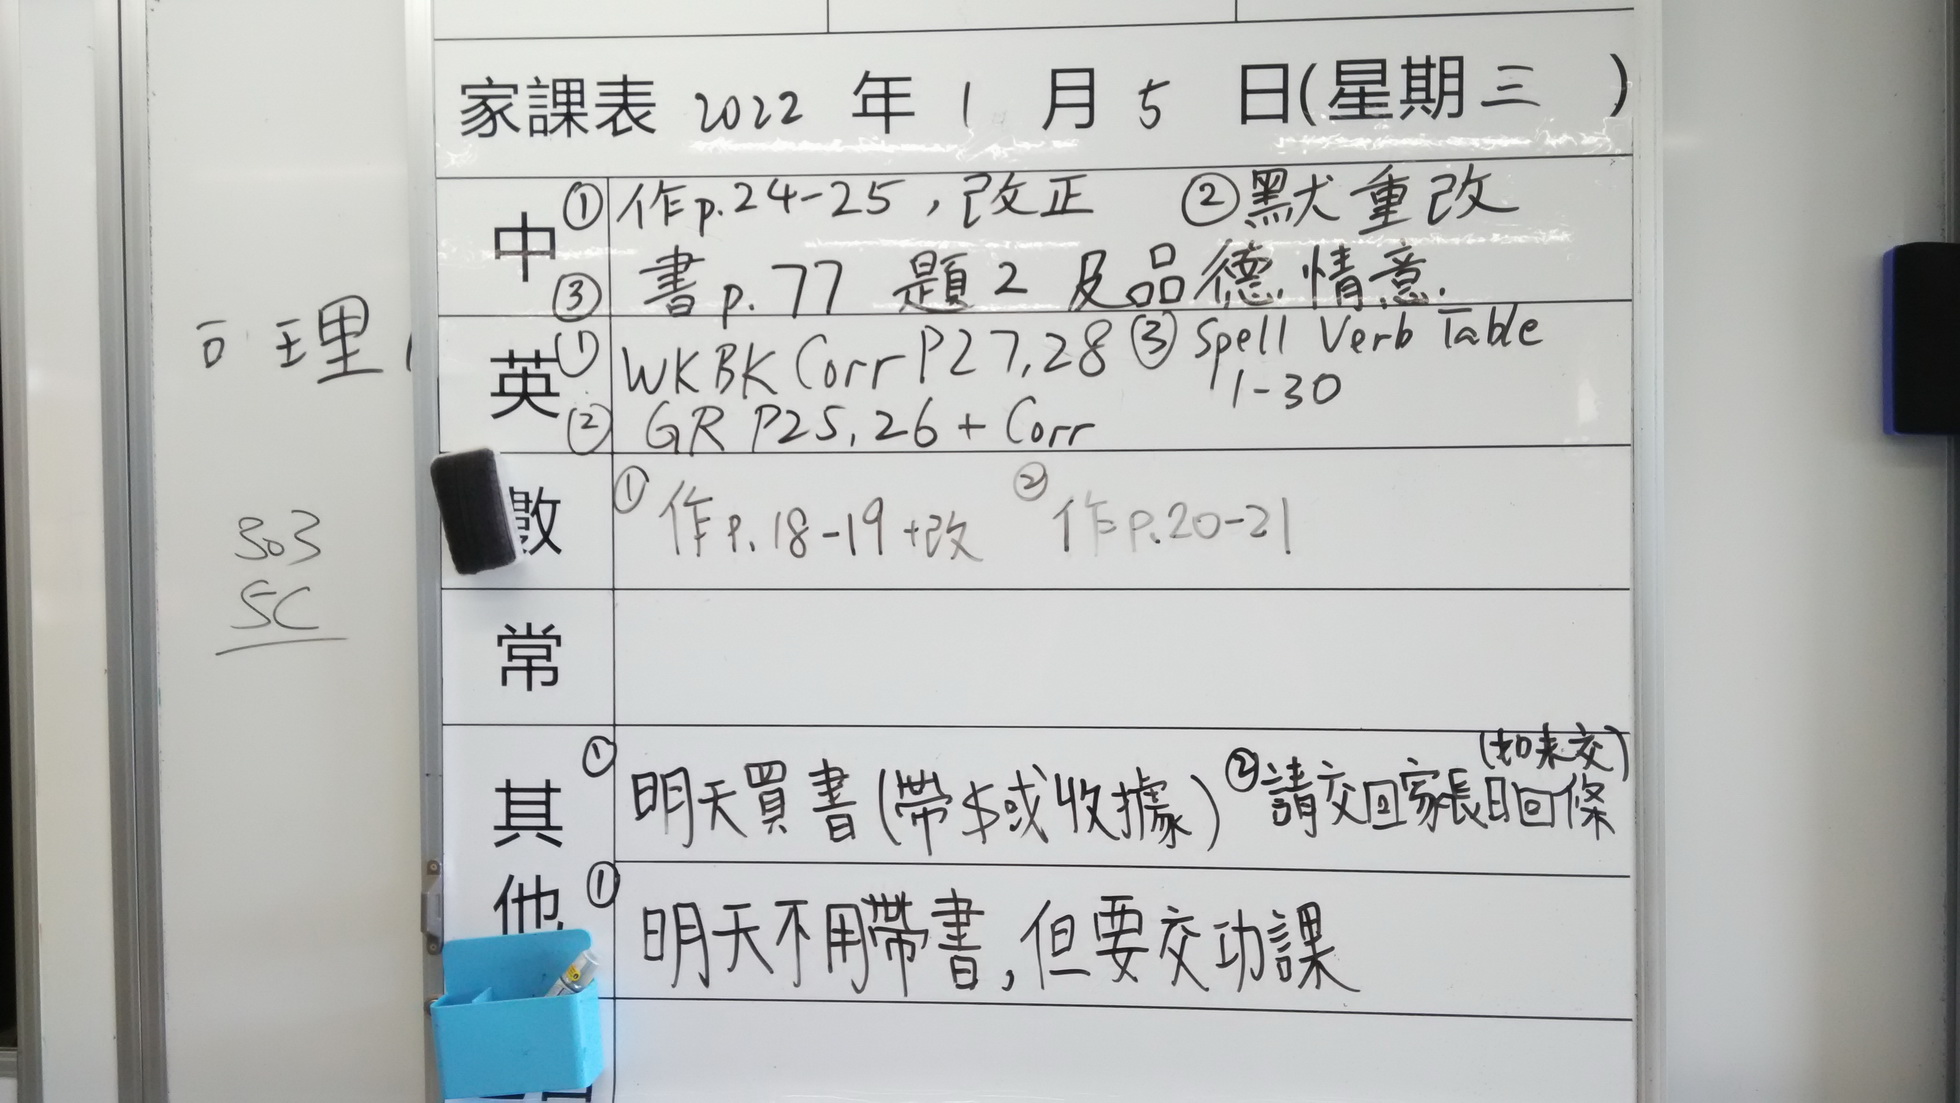 家課表 2022 年 1 月 5 日(星期三 )
中
① 作p.24-25，改正 ② 默重改
③ 書p.77 題2 及品德情意.
英
① WKBK Corr P27,28 ③ Spell Verb Table
1-30
② GR P25,26 + Corr
數
① 作p.18-19+改 ② 作p.20-21
常
其他
(如未交)
① 明天買書(帶$或收據) ② 請交回家長日回條
① 明天不用帶書,但要交功課
理
303
5C